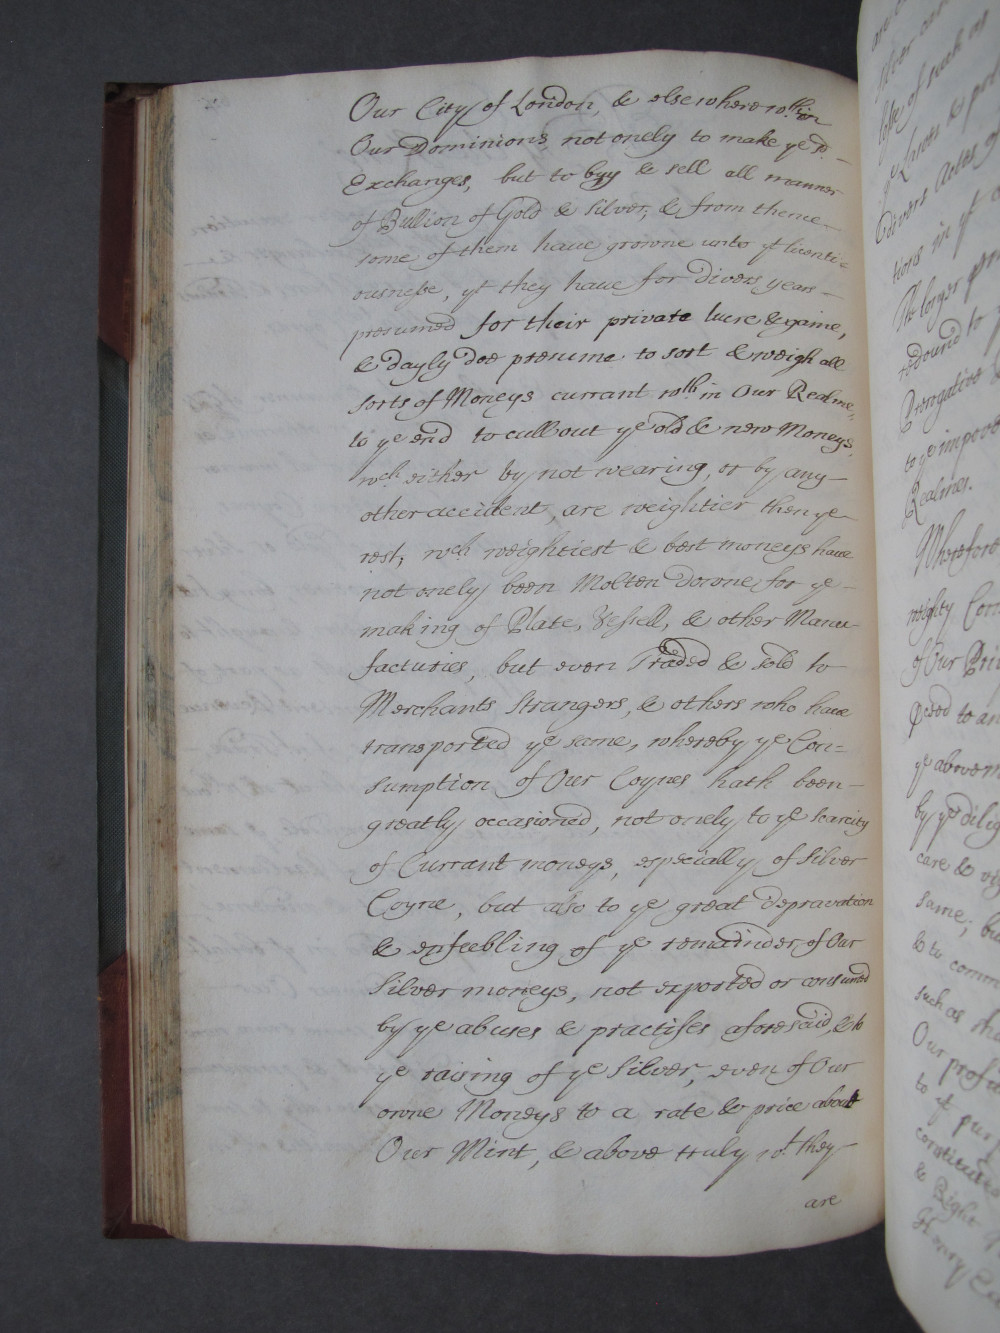 Our City of London, & elsewhere wthin
Our Dominions, not onely to make ye sd.
Exchanges, but to byy & sell all manner
of Bullion of Gold & Silver; & from thence
some of them have growne unto yt licenti=
ousnesse, yt they have for divers years
presumed for their private lucre & gaine,
& dayly doe presume to sort & weigh all
sorts of Moneys currant wthin Our Realme,
to ye end to cull out ye old & new Moneys,
wch either by not wearing, or by any
other accident, are weightier then ye
rest; wch weightiest & best moneys have
not onely been Molten downe for ye
making of Plate, Vessell, & other Manu=
facturies, but even Traded & sold to
Merchants Strangers, & others who have
transported ye same, whereby ye Con=
sumption of Our Coynes hath been
greatly occasioned, not onely to ye scarcity
of Currant moneys, especially of Silver
Coyne, but also to ye great depravation
& enfeebling of ye remainder of Our
Silver moneys, not exported or consumed
by ye abuses & practises aforesaid, & to
ye raising of ye Silver, even of Our
owne Moneys to a rate & price above
Our Mint, & above truly wt. they
are
Silver
losse of such
ye Lawes &
Divers Actes
tions in yt
The longer
redound to
Prerogative &
to ye impove
Realmes.
Wherefore
mighty
of Our Priv
pceed to an
ye above m
by yr dilig
care & vig
same; bu
& to comm
such as sha
Our profi
to yt purp
constitute
& Right
Henry